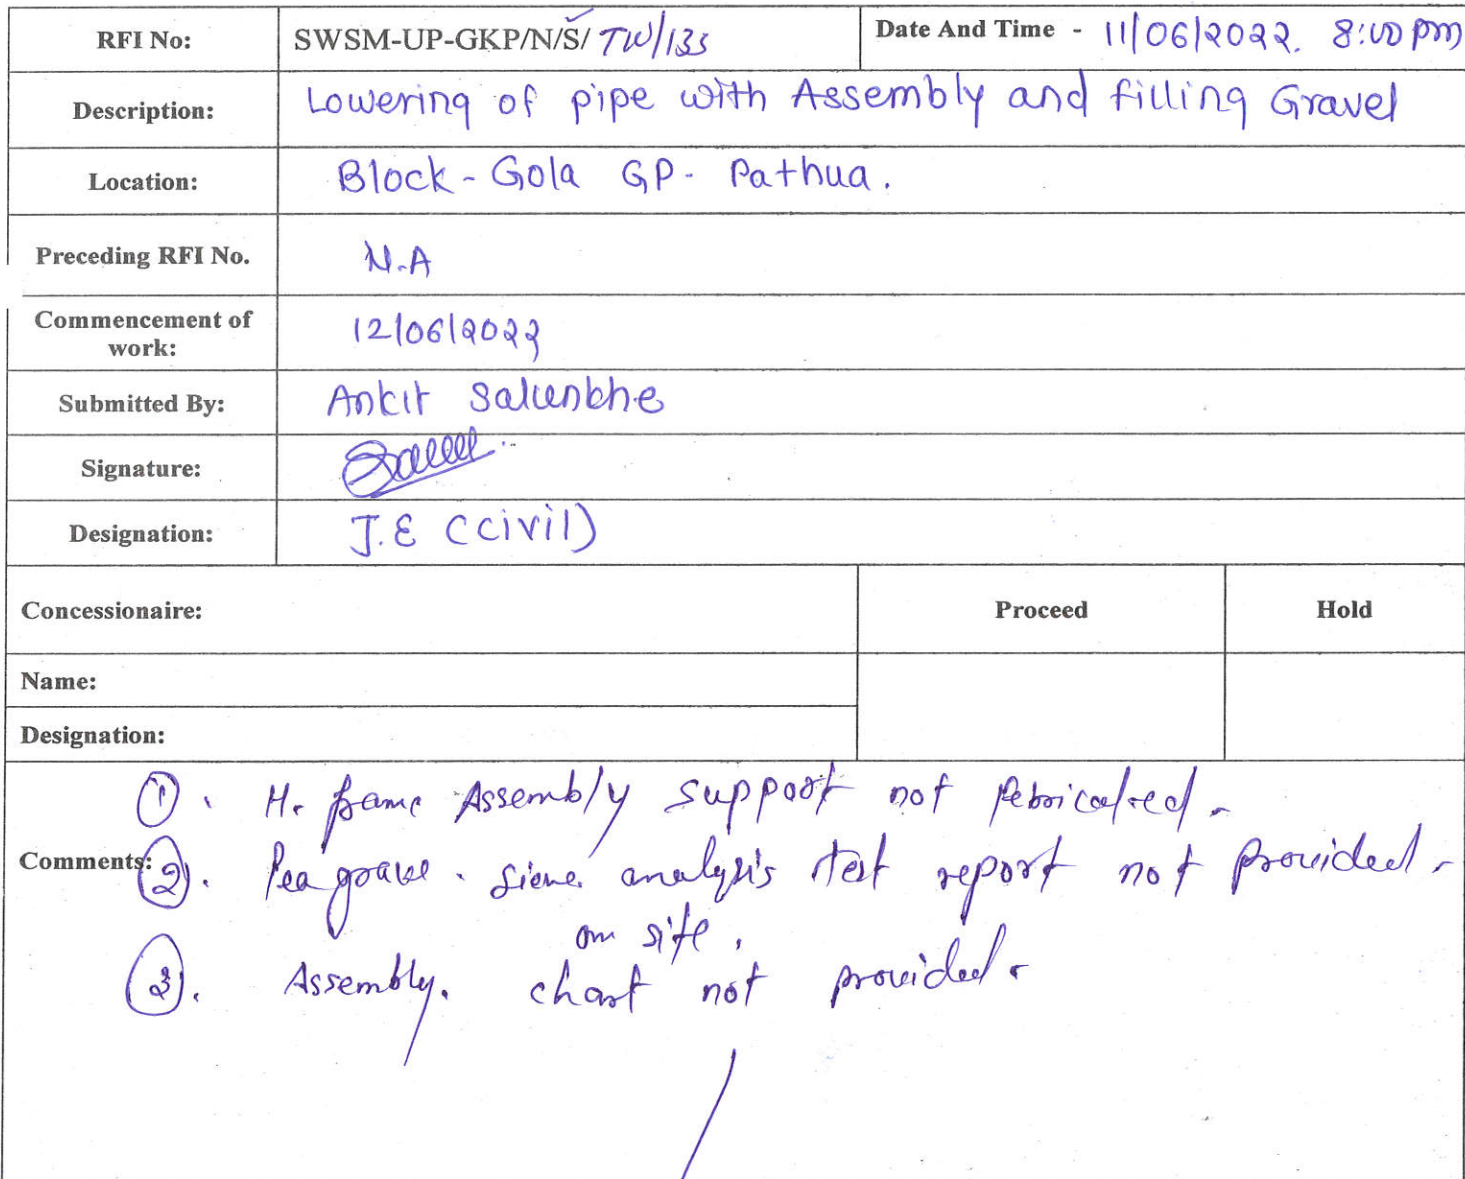 RFI No: SWSM-UP-GKP/N/S/ TW/135 Date And Time - 11/06/2022. 8:00 pm
Description: Lowering of pipe with Assembly and filling Gravel
Location: Block - Gola GP - Pathua.
Preceding RFI No. N.A
Commencement of
work: 12/06/2022
Submitted By: Ankit Salunkhe
Signature:
Designation: J.E (civil)
Concessionaire: Proceed Hold
Name:
Designation:
1. H. frame Assembly support not febricated.
Comments: 2. Pea gravel. Sieve analysis test report not provided.
on site.
3. Assembly. chart not provided.